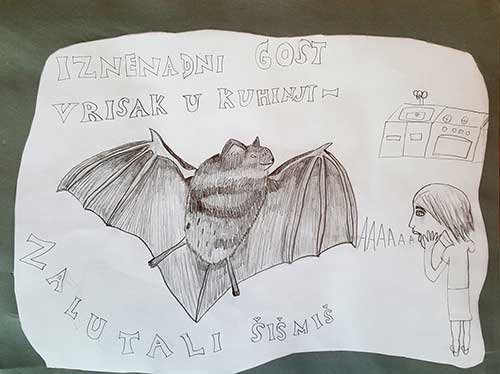 IZNENADNI GOST
VRISAK U KUHINJI-
AAAAAAA
ZALUTALI ŠIŠMIŠ